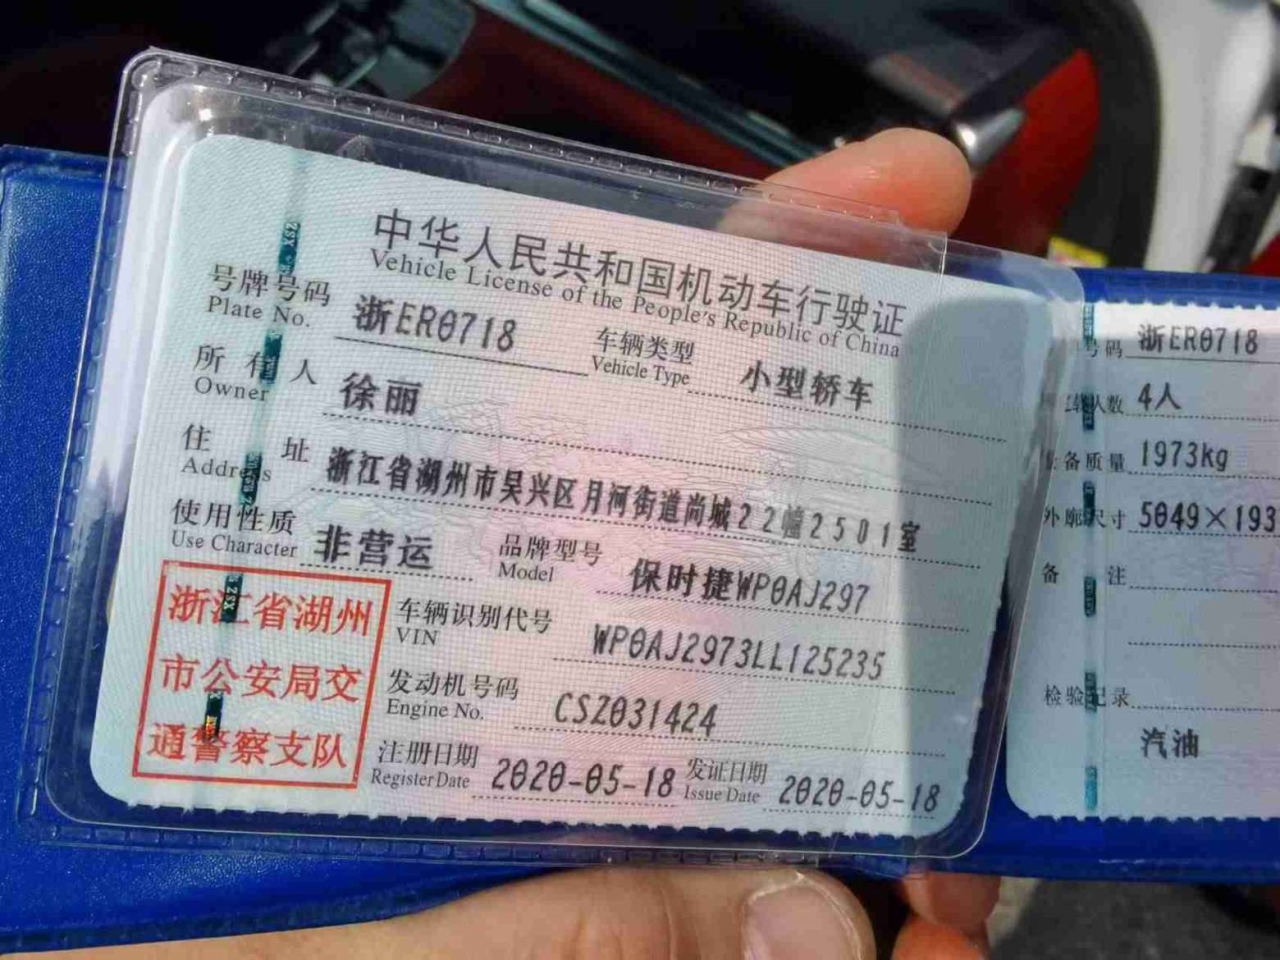 中华人民共和国机动车行驶证
Vehicle License of the People's Republic of China
号牌号码 浙ER0718 车辆类型 小型轿车
Plate No. Vehicle Type
所有人 徐丽
Owner
住址 浙江省湖州市吴兴区月河街道尚城22幢2501室
Address
使用性质 非营运 品牌型号 保时捷WP0AJ297
Use Character Model
浙江省湖州
市公安局交
通警察支队
车辆识别代号 WP0AJ2973LL125235
VIN
发动机号码 CSZ031424
Engine No.
注册日期 2020-05-18 发证日期 2020-05-18
Register Date Issue Date
号码 浙ER0718
人数 4人
备质量 1973kg
外廓尺寸 5049×193
备注
检验记录
汽油